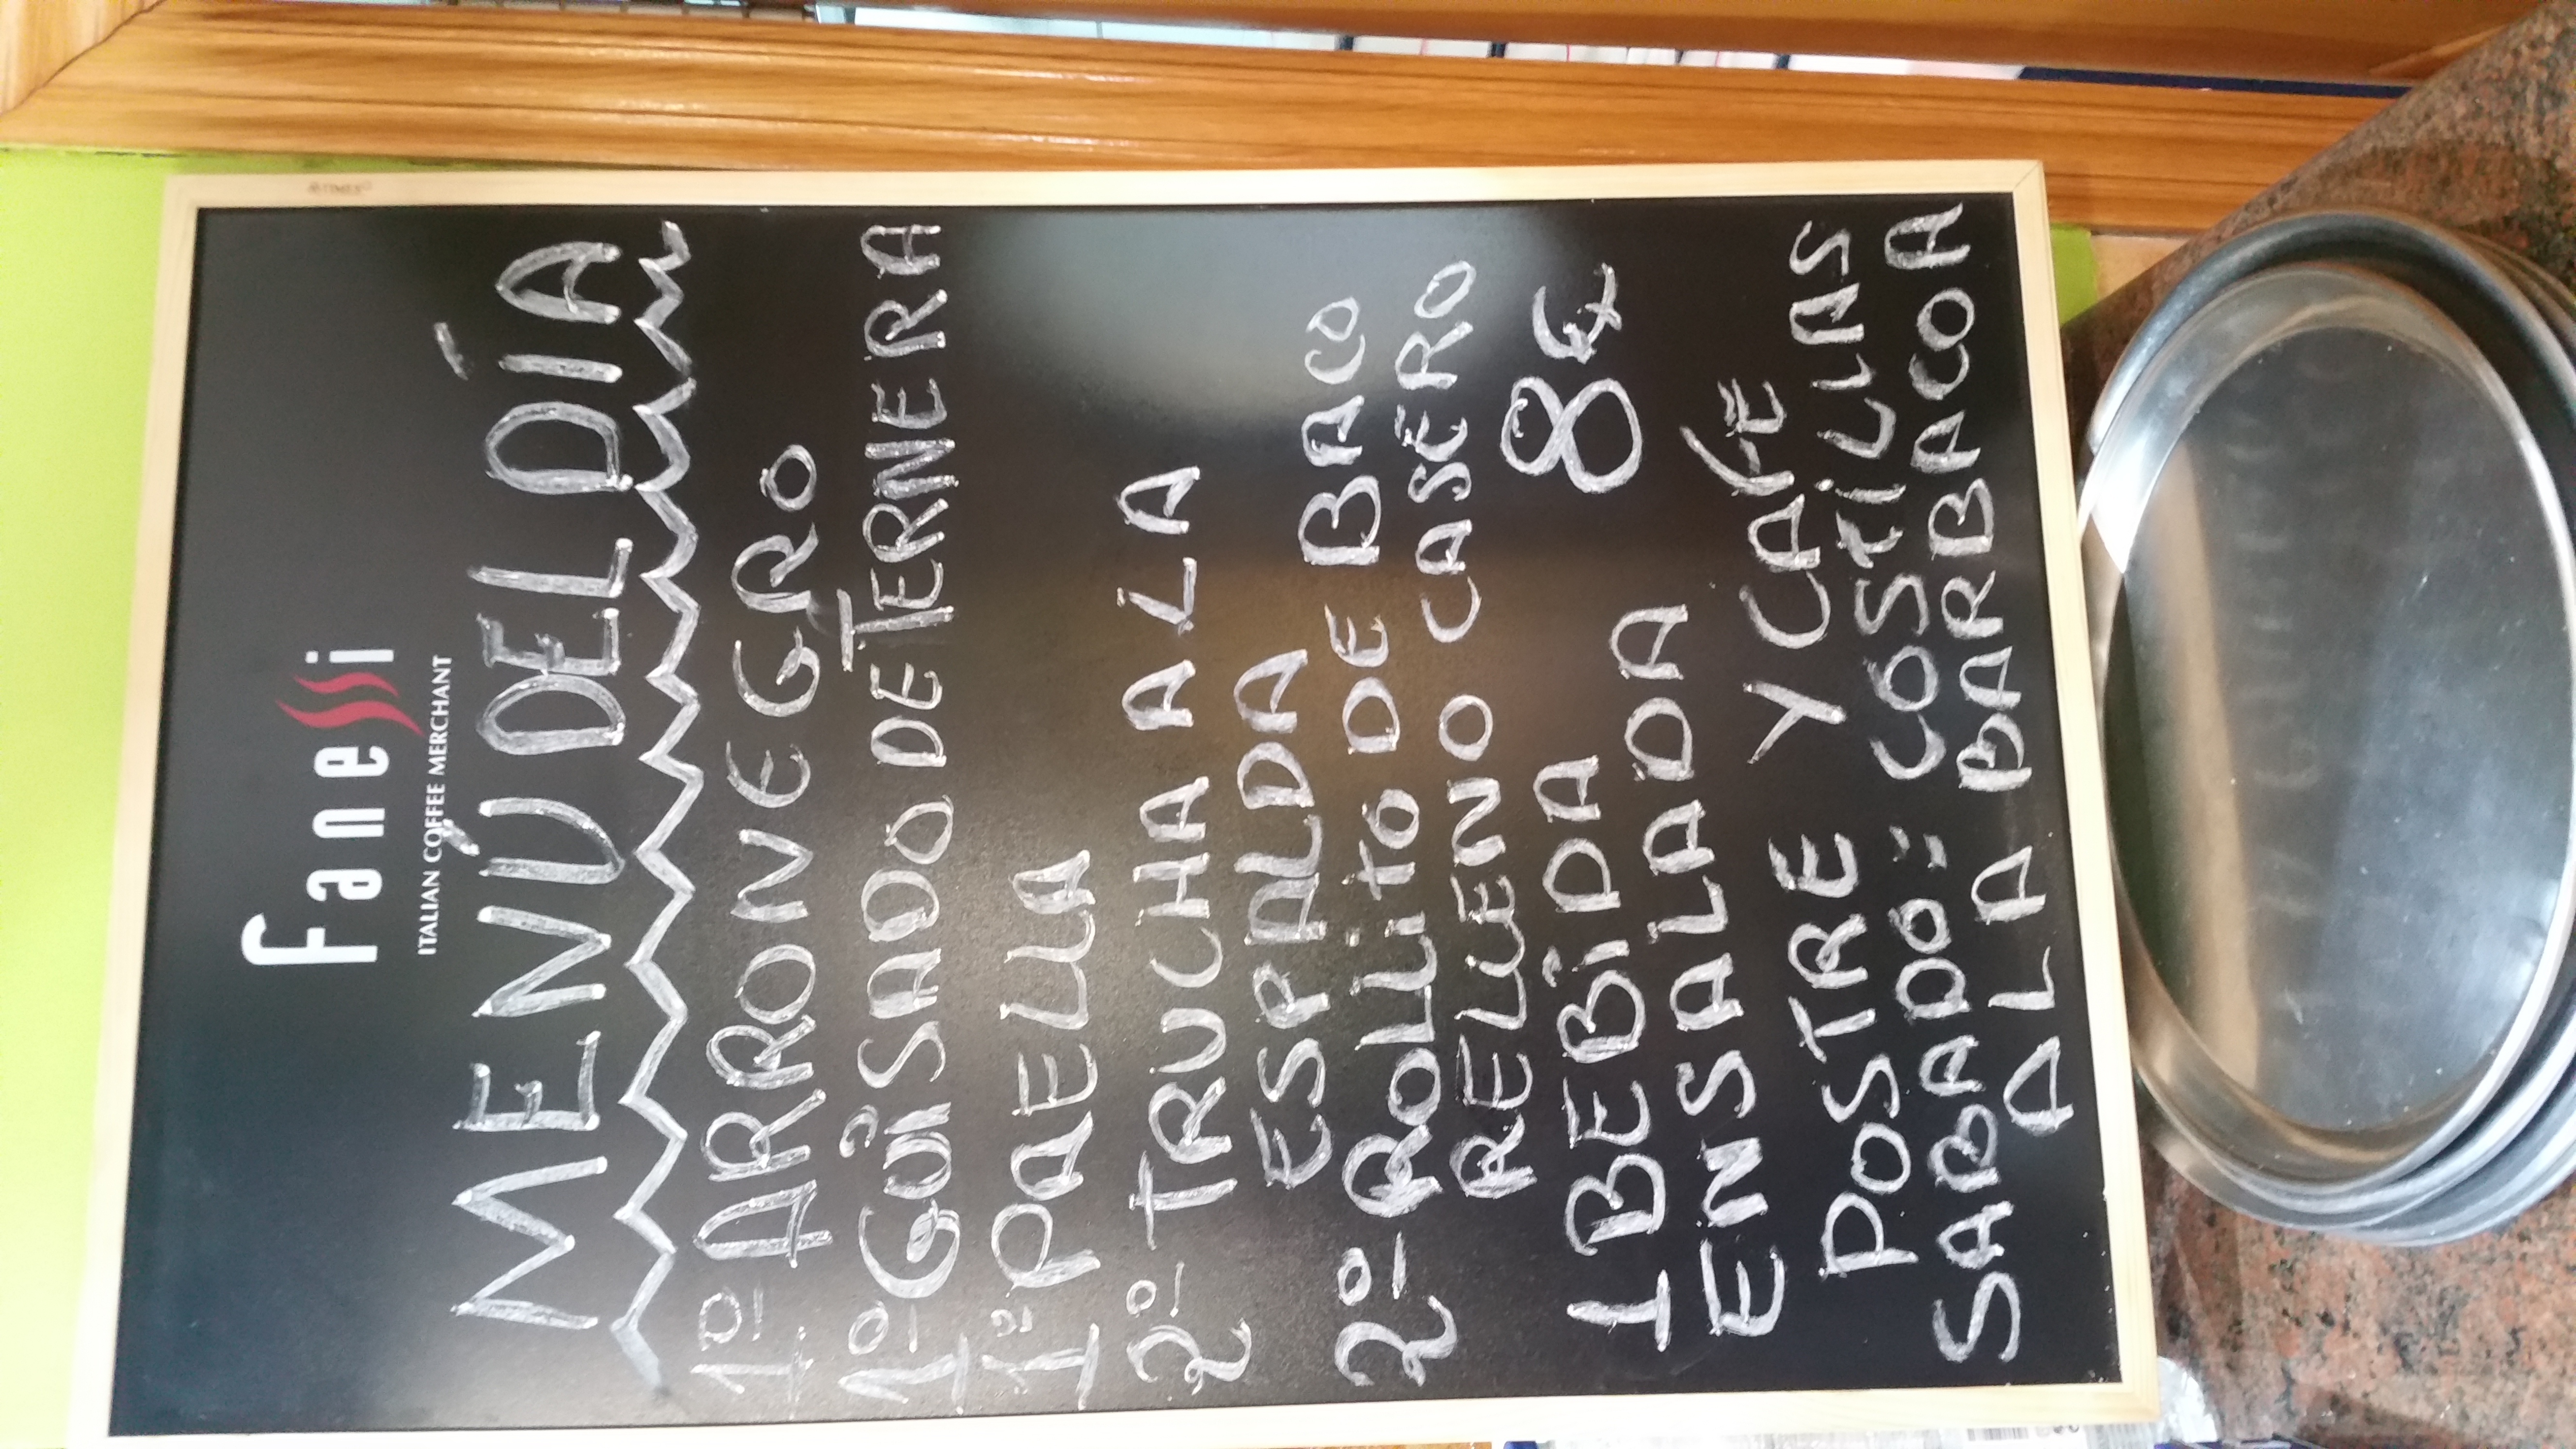 Fanessi
ITALIAN COFFEE MERCHANT
MENÚ DEL DÍA
1º ARRONEGRO
1º GUISADO DE TERNERA
1º PAELLA
2º TRUCHA A LA
ESPALDA
2º ROLLITO DE BACO
RELLENO CASERO
1 BEBIDA 8€
ENSALADA
POSTRE Y CAFÉ
SABADO: COSTILLAS
A LA BARBACOA